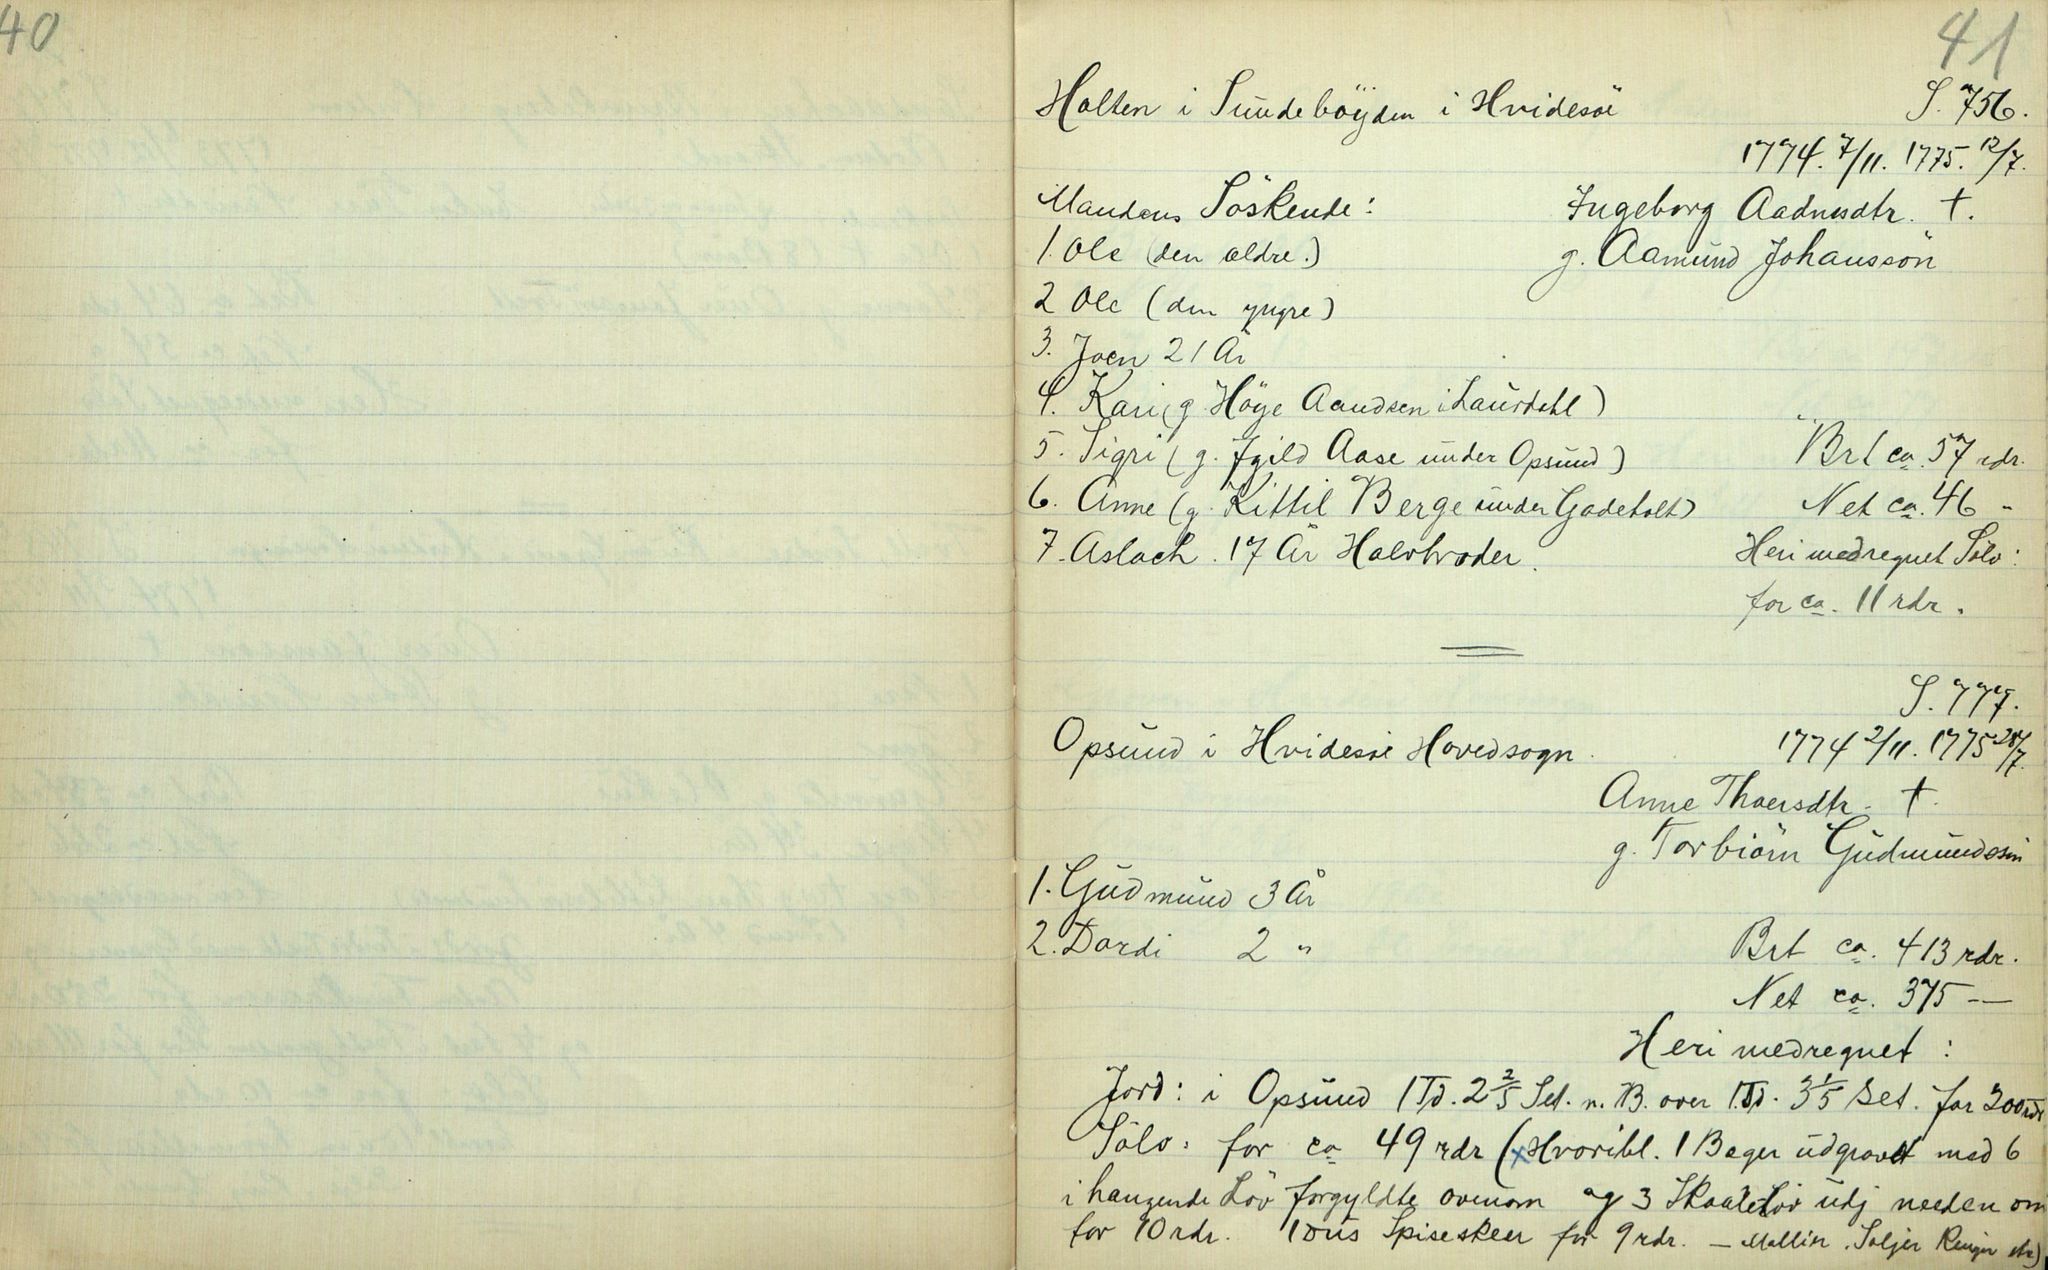 40
41
Holten i Sundebøyden i Hvidesøe
S. 756.
1774. 7/11. 1775. 12/7.
Mandens Söskende:
Ingeborg Aadnesdtr. †.
1. Ole (den ældre.)
g. Aamund Johansson
2 Ole (den yngre)
3. Joen 21 År
4. Kari (g. Höye Aandsen i Laurdahl)
5. Sigri (g. Jgild Aase under Opsund)
Brt ca. 57 rdr.
6. Anne (g. Kittil Berge under Gadeholt)
Net ca. 46 "
7. Aslach. 17 År Halvbroder.
Heri medregnet Sölv:
for ca. 11 rdr.
S. 777.
Opsund i Hvidesøe Hovedsogn.
1774 2/11. 1775 28/7.
Anne Thoersdtr. †.
g. Torbiörn Gudmundssön
1. Gudmund 3 År
2. Dordi 2 "
Brt ca. 413 rdr.
Net ca. 375 —
Heri medregnet:
Jord: i Opsund 1 Td. 2 2/5 Set. n. B. over 1 Td. 3 1/5 Set. for 300 rdr
Sölv: for ca 49 rdr (x Hvoribl. 1 Beger udgravet med 6
i hangende Löv forgyldte ovenom og 3 Skaaler udj neden om
for 10 rdr. 1 dus Spiseskeer for 9 rdr. — Mallier. Soljer Ringer etc)